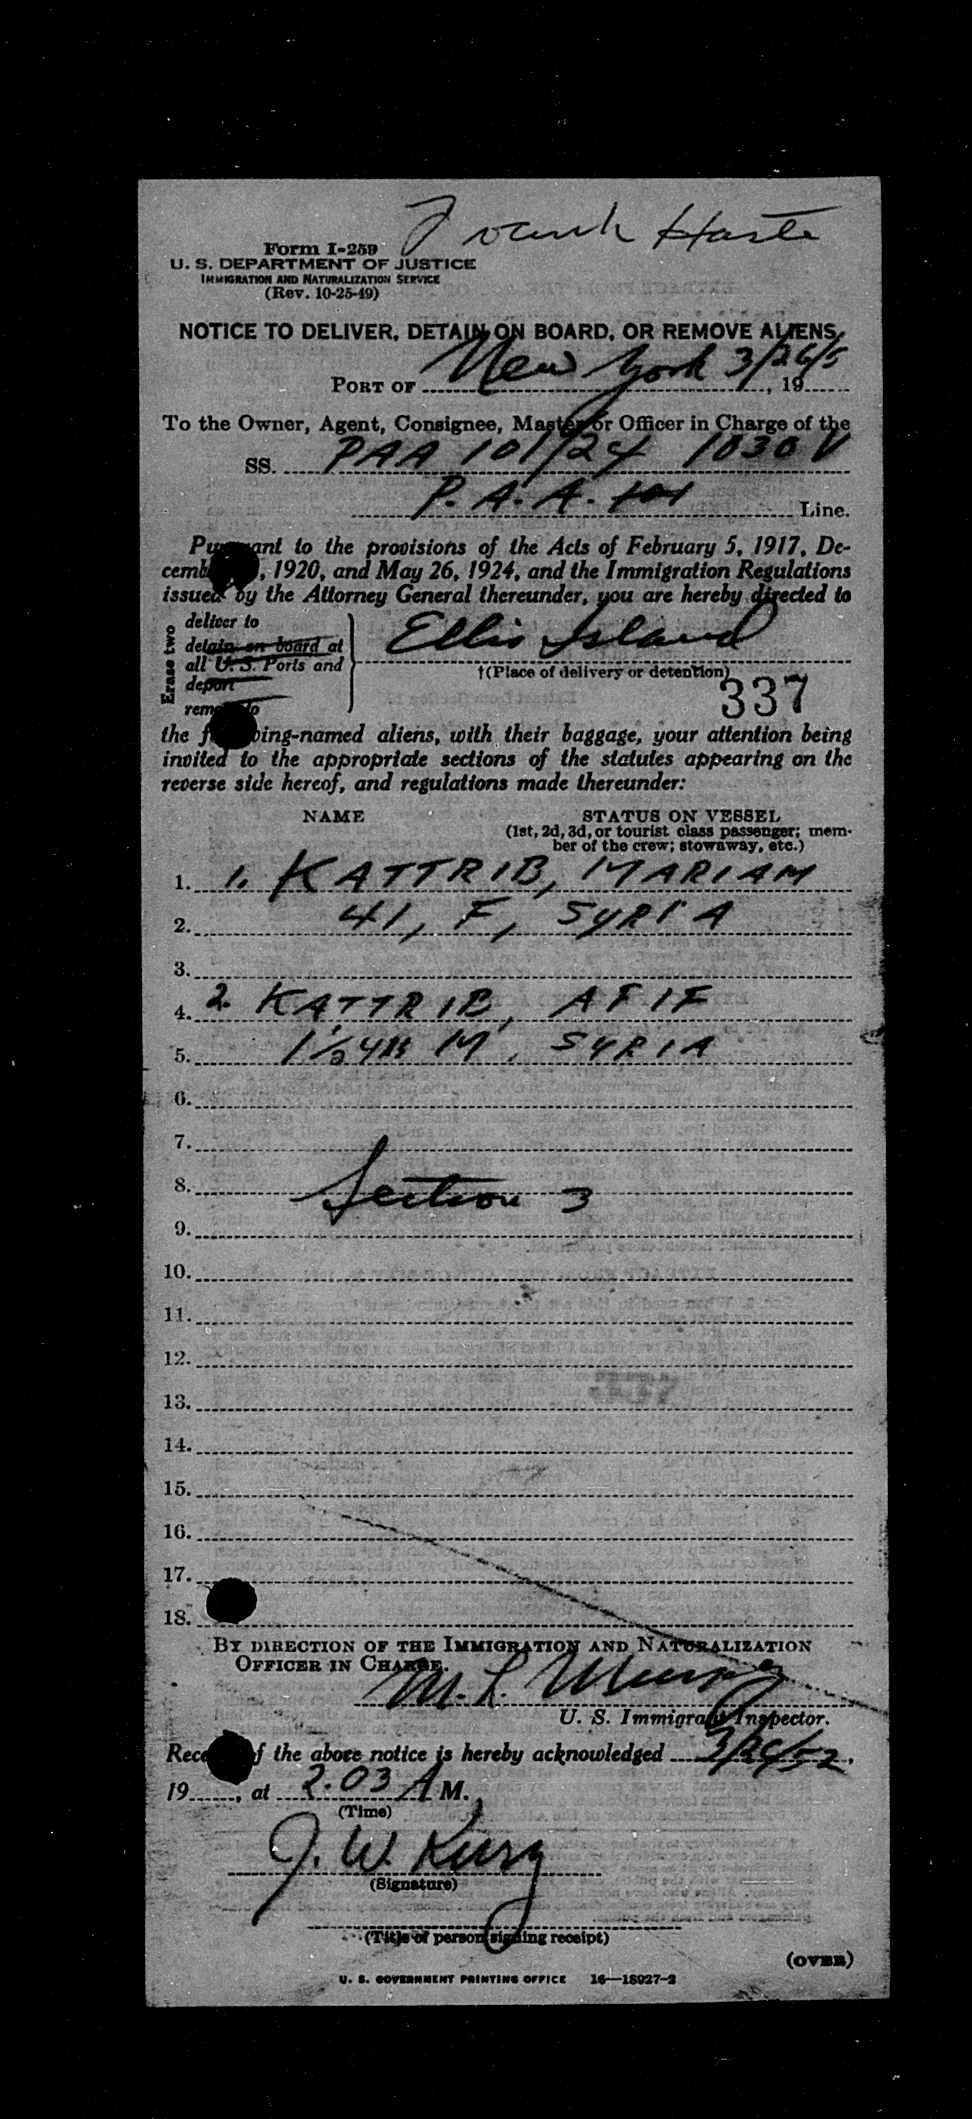 Frank Haste
Form I-259
U. S. DEPARTMENT OF JUSTICE
IMMIGRATION AND NATURALIZATION SERVICE
(Rev. 10-25-49)
NOTICE TO DELIVER, DETAIN ON BOARD, OR REMOVE ALIENS
PORT OF New York 3/26/5, 19
To the Owner, Agent, Consignee, Master or Officer in Charge of the
SS. PAA 101/24 1030 V
P. A. A. 101 Line.
Pursuant to the provisions of the Acts of February 5, 1917, De-
cemb , 1920, and May 26, 1924, and the Immigration Regulations
issued by the Attorney General thereunder, you are hereby directed to
Erase two
deliver to
detain on board at
all U. S. Ports and
deport
remove to
Ellis Island
†(Place of delivery or detention)
337
the following-named aliens, with their baggage, your attention being
invited to the appropriate sections of the statutes appearing on the
reverse side hereof, and regulations made thereunder:
NAME STATUS ON VESSEL
(1st, 2d, 3d, or tourist class passenger; mem-
ber of the crew; stowaway, etc.)
1. 1. KATTRIB, MARIAM
2. 41, F, SYRIA
3.
4. 2. KATTRIB, AFIF
5. 1 1/2 YR M, SYRIA
6.
7.
8. Section 3
9.
10.
11.
12.
13.
14.
15.
16.
17.
18.
BY DIRECTION OF THE IMMIGRATION AND NATURALIZATION
OFFICER IN CHARGE.
M. L.
U. S. Immigrant Inspector.
Receipt of the above notice is hereby acknowledged 3/26/52,
19, at 2.03 A M.
(Time)
J. W. Kurz
(Signature)
(Title of person signing receipt)
(OVER)
U. S. GOVERNMENT PRINTING OFFICE 16—18927-2